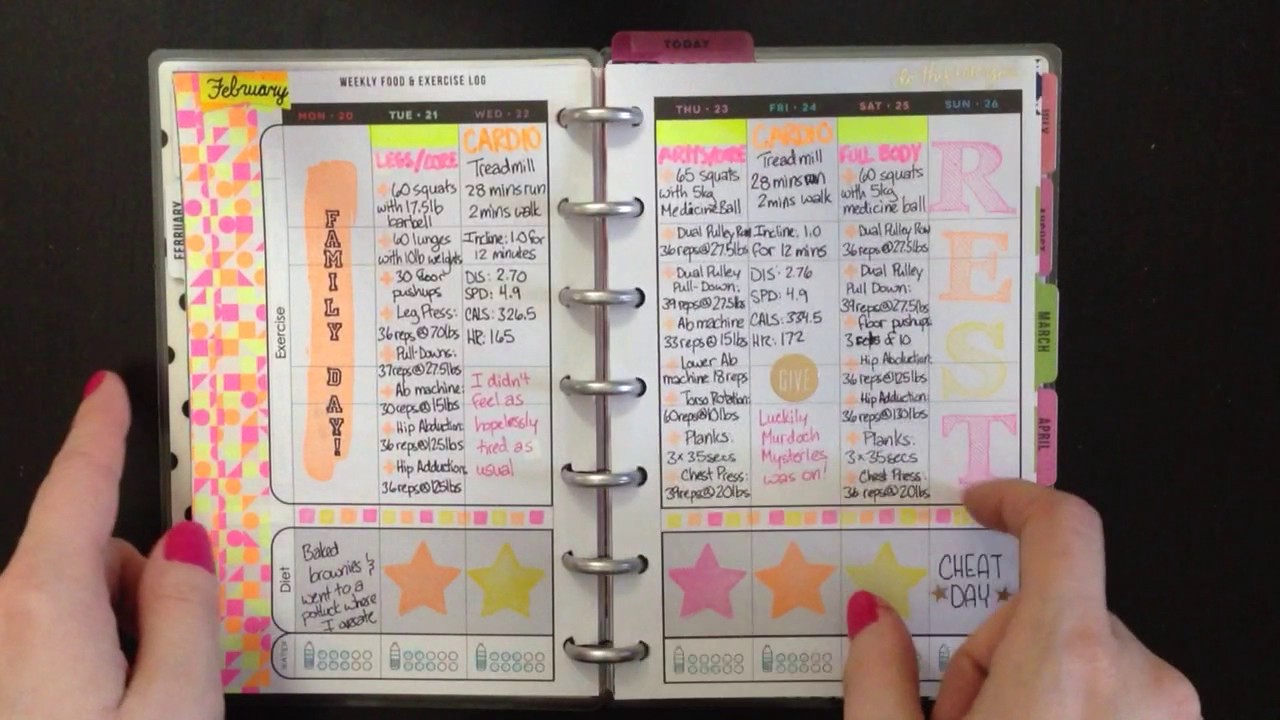 TODAY
February
WEEKLY FOOD & EXERCISE LOG
FEBRUARY
MON • 20
TUE • 21
WED • 22
Exercise
FAMILY DAY!
LEGS/CORE
+ 60 squats
with 17.5lb
barbell
+ 60 lunges
with 10lb weights
+ 30 floor
pushups
+ Leg Press:
36reps@70lbs
+ Pull-Downs:
37reps@27.5lbs
+ Ab machine:
30reps@15lbs
+ Hip Abduction:
36reps@125lbs
+ Hip Adduction
36reps@125lbs
CARDIO
Treadmill
28 mins run
2mins walk
Incline: 1.0 for
12 minutes
DIS: 2.70
SPD: 4.9
CALS: 326.5
HR: 165
I didn't
feel as
hopelessly
tired as
usual
Diet
Baked
brownies &
went to a
potluck where
I
WATER
THU • 23
FRI • 24
SAT • 25
SUN • 26
ARMS/CORE
+ 65 squats
with 5kg
Medicine Ball
+ Dual Pulley Row
36reps@27.5lbs
+ Dual Pulley
Pull-Down:
39reps@27.5lbs
+ Ab machine
33reps@15lbs
+ Lower Ab
machine 18reps
+ Torso Rotation:
60reps@10lbs
+ Planks:
3x35secs
+ Chest Press:
39reps@20lbs
CARDIO
Treadmill
28 mins run
2mins walk
Incline: 1.0
for 12 mins
DIS: 2.76
SPD: 4.9
CALS: 334.5
HR: 172
GIVE
Luckily
Murdoch
Mysteries
was on!
FULL BODY
+ 60 squats
with 5kg
medicine ball
+ Dual Pulley Row
36reps@27.5lbs
+ Dual Pulley
Pull Down:
39reps@27.5lbs
+ Floor pushups
3 of 10
+ Hip Abduction:
36reps@125lbs
+ Hip Adduction:
36reps@130lbs
+ Planks:
3x35secs
+ Chest Press:
36 reps@20lbs
REST
CHEAT
DAY
JULY
AUGUST
MARCH
APRIL